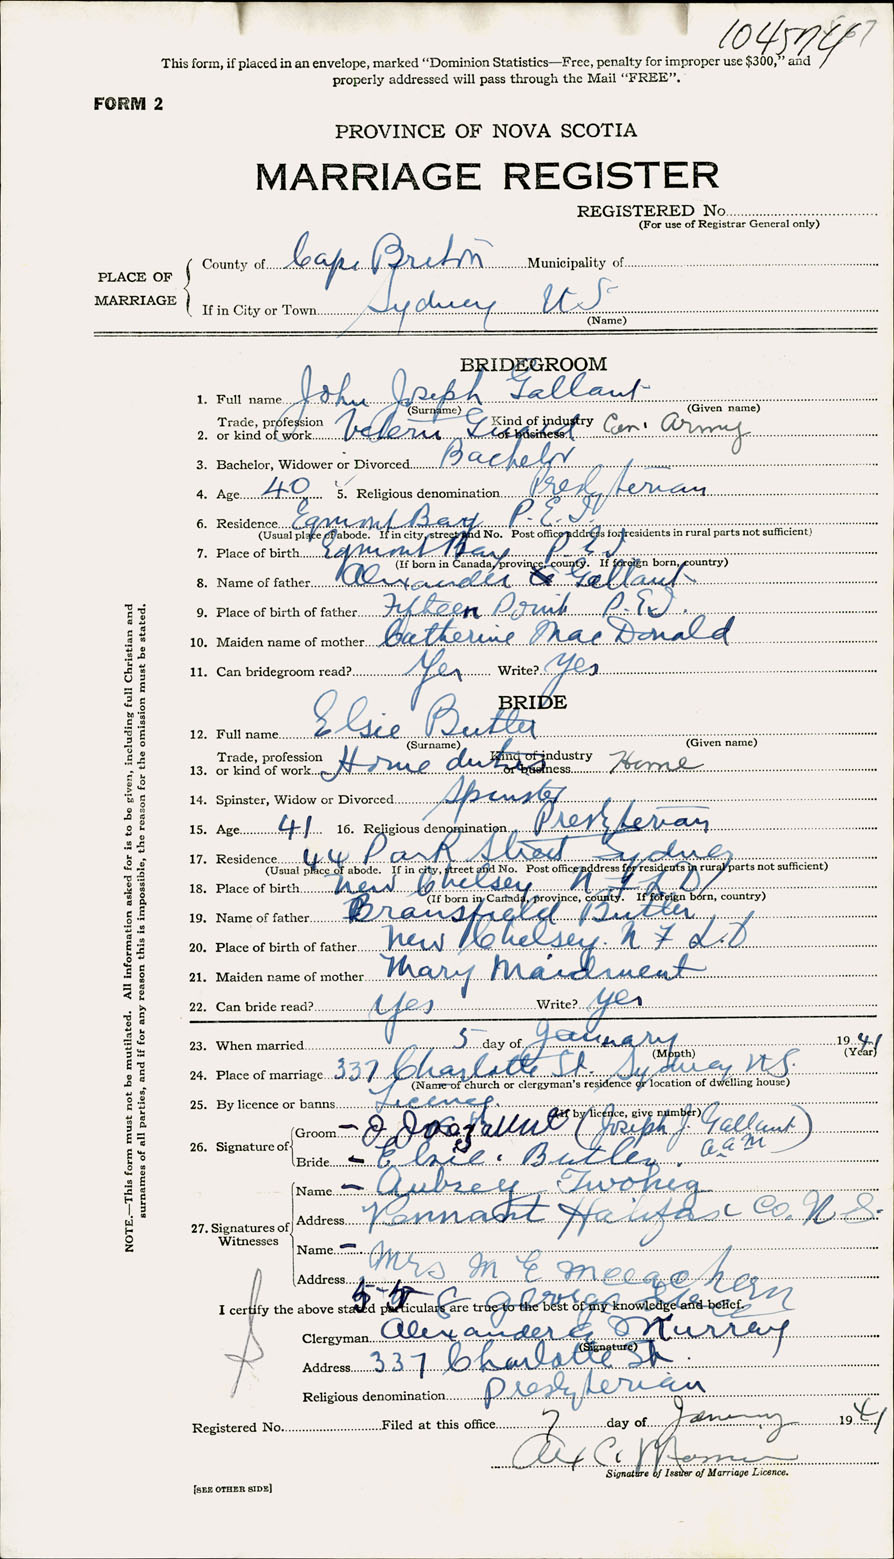 104574
This form, if placed in an envelope, marked “Dominion Statistics—Free, penalty for improper use $300,” and
properly addressed will pass through the Mail “FREE”.
FORM 2
PROVINCE OF NOVA SCOTIA
MARRIAGE REGISTER
REGISTERED No.
(For use of Registrar General only)
PLACE OF MARRIAGE
County of Cape Breton Municipality of
If in City or Town Sydney N S
(Name)
BRIDEGROOM
1. Full name John Joseph Gallant
(Surname) (Given name)
2. Trade, profession or kind of work Vetern Guard Kind of industry or business Can. Army
3. Bachelor, Widower or Divorced Bachelor
4. Age 40 5. Religious denomination Presbyterian
6. Residence Egmont Bay P.E.I.
(Usual place of abode. If in city, street and No. Post office address for residents in rural parts not sufficient)
7. Place of birth Egmont Bay P.E.I
(If born in Canada, province, county. If foreign born, country)
8. Name of father Alexander Gallant
9. Place of birth of father Fifteen Point P.E.I.
10. Maiden name of mother Catherine MacDonald
11. Can bridegroom read? Yes Write? Yes
BRIDE
12. Full name Elsie Butler
(Surname) (Given name)
13. Trade, profession or kind of work Home duties Kind of industry or business Home
14. Spinster, Widow or Divorced Spinster
15. Age 41 16. Religious denomination Presbyterian
17. Residence 44 Park Street Sydney
(Usual place of abode. If in city, street and No. Post office address for residents in rural parts not sufficient)
18. Place of birth New Chelsey NFLD
(If born in Canada, province, county. If foreign born, country)
19. Name of father Bransfield Butler
20. Place of birth of father New Chelsey. N F L.D
21. Maiden name of mother Mary Maidment
22. Can bride read? Yes Write? Yes
23. When married 5 day of January 1941
(Month) (Year)
24. Place of marriage 337 Charlotte St. Sydney N.S.
(Name of church or clergyman's residence or location of dwelling house)
25. By licence or banns Licence.
(If by licence, give number)
26. Signature of Groom – J J Gallant (Joseph J. Gallant)
a a m
Bride – Elsie. Butler.
27. Signatures of Witnesses
Name – Aubrey Twohig
Address Pennant Halifax Co. N.S.
Name – Mrs M E Meeachern
Address 55 George
I certify the above stated particulars are true to the best of my knowledge and belief.
Clergyman Alexander Murray
(Signature)
Address 337 Charlotte St.
Religious denomination Presbyterian
Registered No. Filed at this office 7 day of January 1941
Alex C.
Signature of Issuer of Marriage Licence.
[SEE OTHER SIDE]
NOTE.—This form must not be mutilated. All information asked for is to be given, including full Christian and
surnames of all parties, and if for any reason this is impossible, the reason for the omission must be stated.